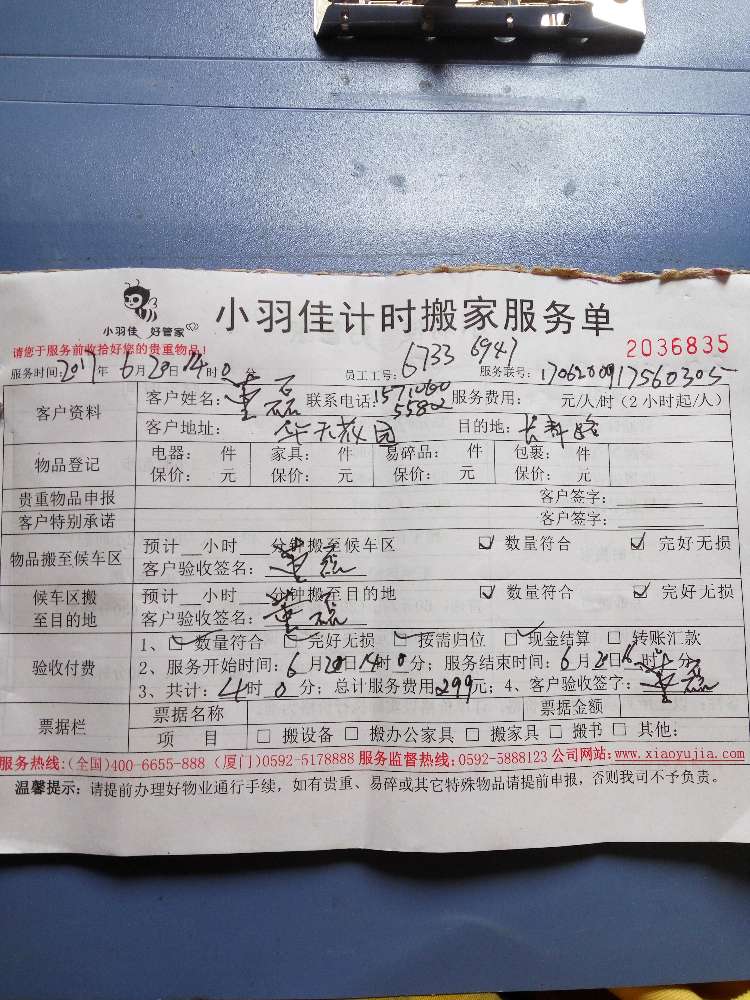 小羽佳 好管家
小羽佳计时搬家服务单
请您于服务前收拾好您的贵重物品!
2036835
服务时间:2017年6月20日14时0分 员工工号:6733 6947 服务联号:1706200917560305
客户资料 客户姓名: 磊 联系电话: 服务费用: 元/人/时(2小时起/人)
客户地址: 目的地:
物品登记 电器: 件 家具: 件 易碎品: 件 包裹: 件
保价: 元 保价: 元 保价: 元 保价: 元
贵重物品申报 客户签字:
客户特别承诺 客户签字:
物品搬至候车区 预计__小时__分钟搬至候车区 ☑ 数量符合 ☑ 完好无损
客户验收签名: 磊
候车区搬至目的地 预计__小时__分钟搬至目的地 ☑ 数量符合 ☑ 完好无损
客户验收签名: 磊
验收付费 1、☑ 数量符合 ☑ 完好无损 ☑ 按需归位 ☑ 现金结算 □ 转账汇款
2、服务开始时间:6月20日14时0分;服务结束时间:6月20日16时 分
3、共计:4时0分;总计服务费用299元;4、客户验收签字: 磊
票据栏 票据名称 票据金额
项 目 □ 搬设备 □ 搬办公家具 □ 搬家具 □ 搬书 □ 其他:
服务热线:(全国)400-6655-888 (厦门)0592-5178888 服务监督热线:0592-5888123 公司网站:www.xiaoyujia.com
温馨提示:请提前办理好物业通行手续,如有贵重、易碎或其它特殊物品请提前申报,否则我司不予负责。